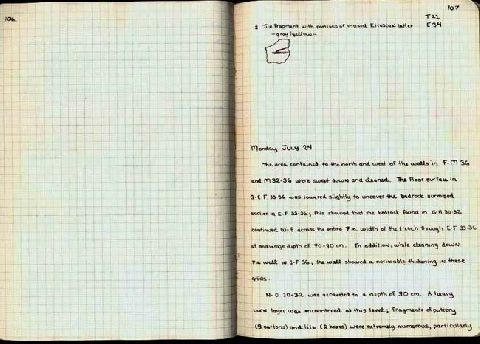 106
107
E34
2 Tile fragment with portions of incised Etruscan letter
- gray/yellow
Monday July 24
The area contained to the north and west of the walls in F-M 36
and M 32-36 were swept down and cleaned. The floor surface in
36 was lowered slightly to uncover the bedrock surveyed
earlier in 36; this showed that the bedrock found in 30-32
continued across the entire width of the trench through 36
at average depth of 70-90 cm. In addition, while cleaning down
the wall in 36, the wall showed a noticeable thickening in these
grids.
30-32 was excavated to a depth of 90 cm. A heavy
layer was encountered at this level; fragments of pottery
and tile (2 boxes) were extremely numerous, particularly